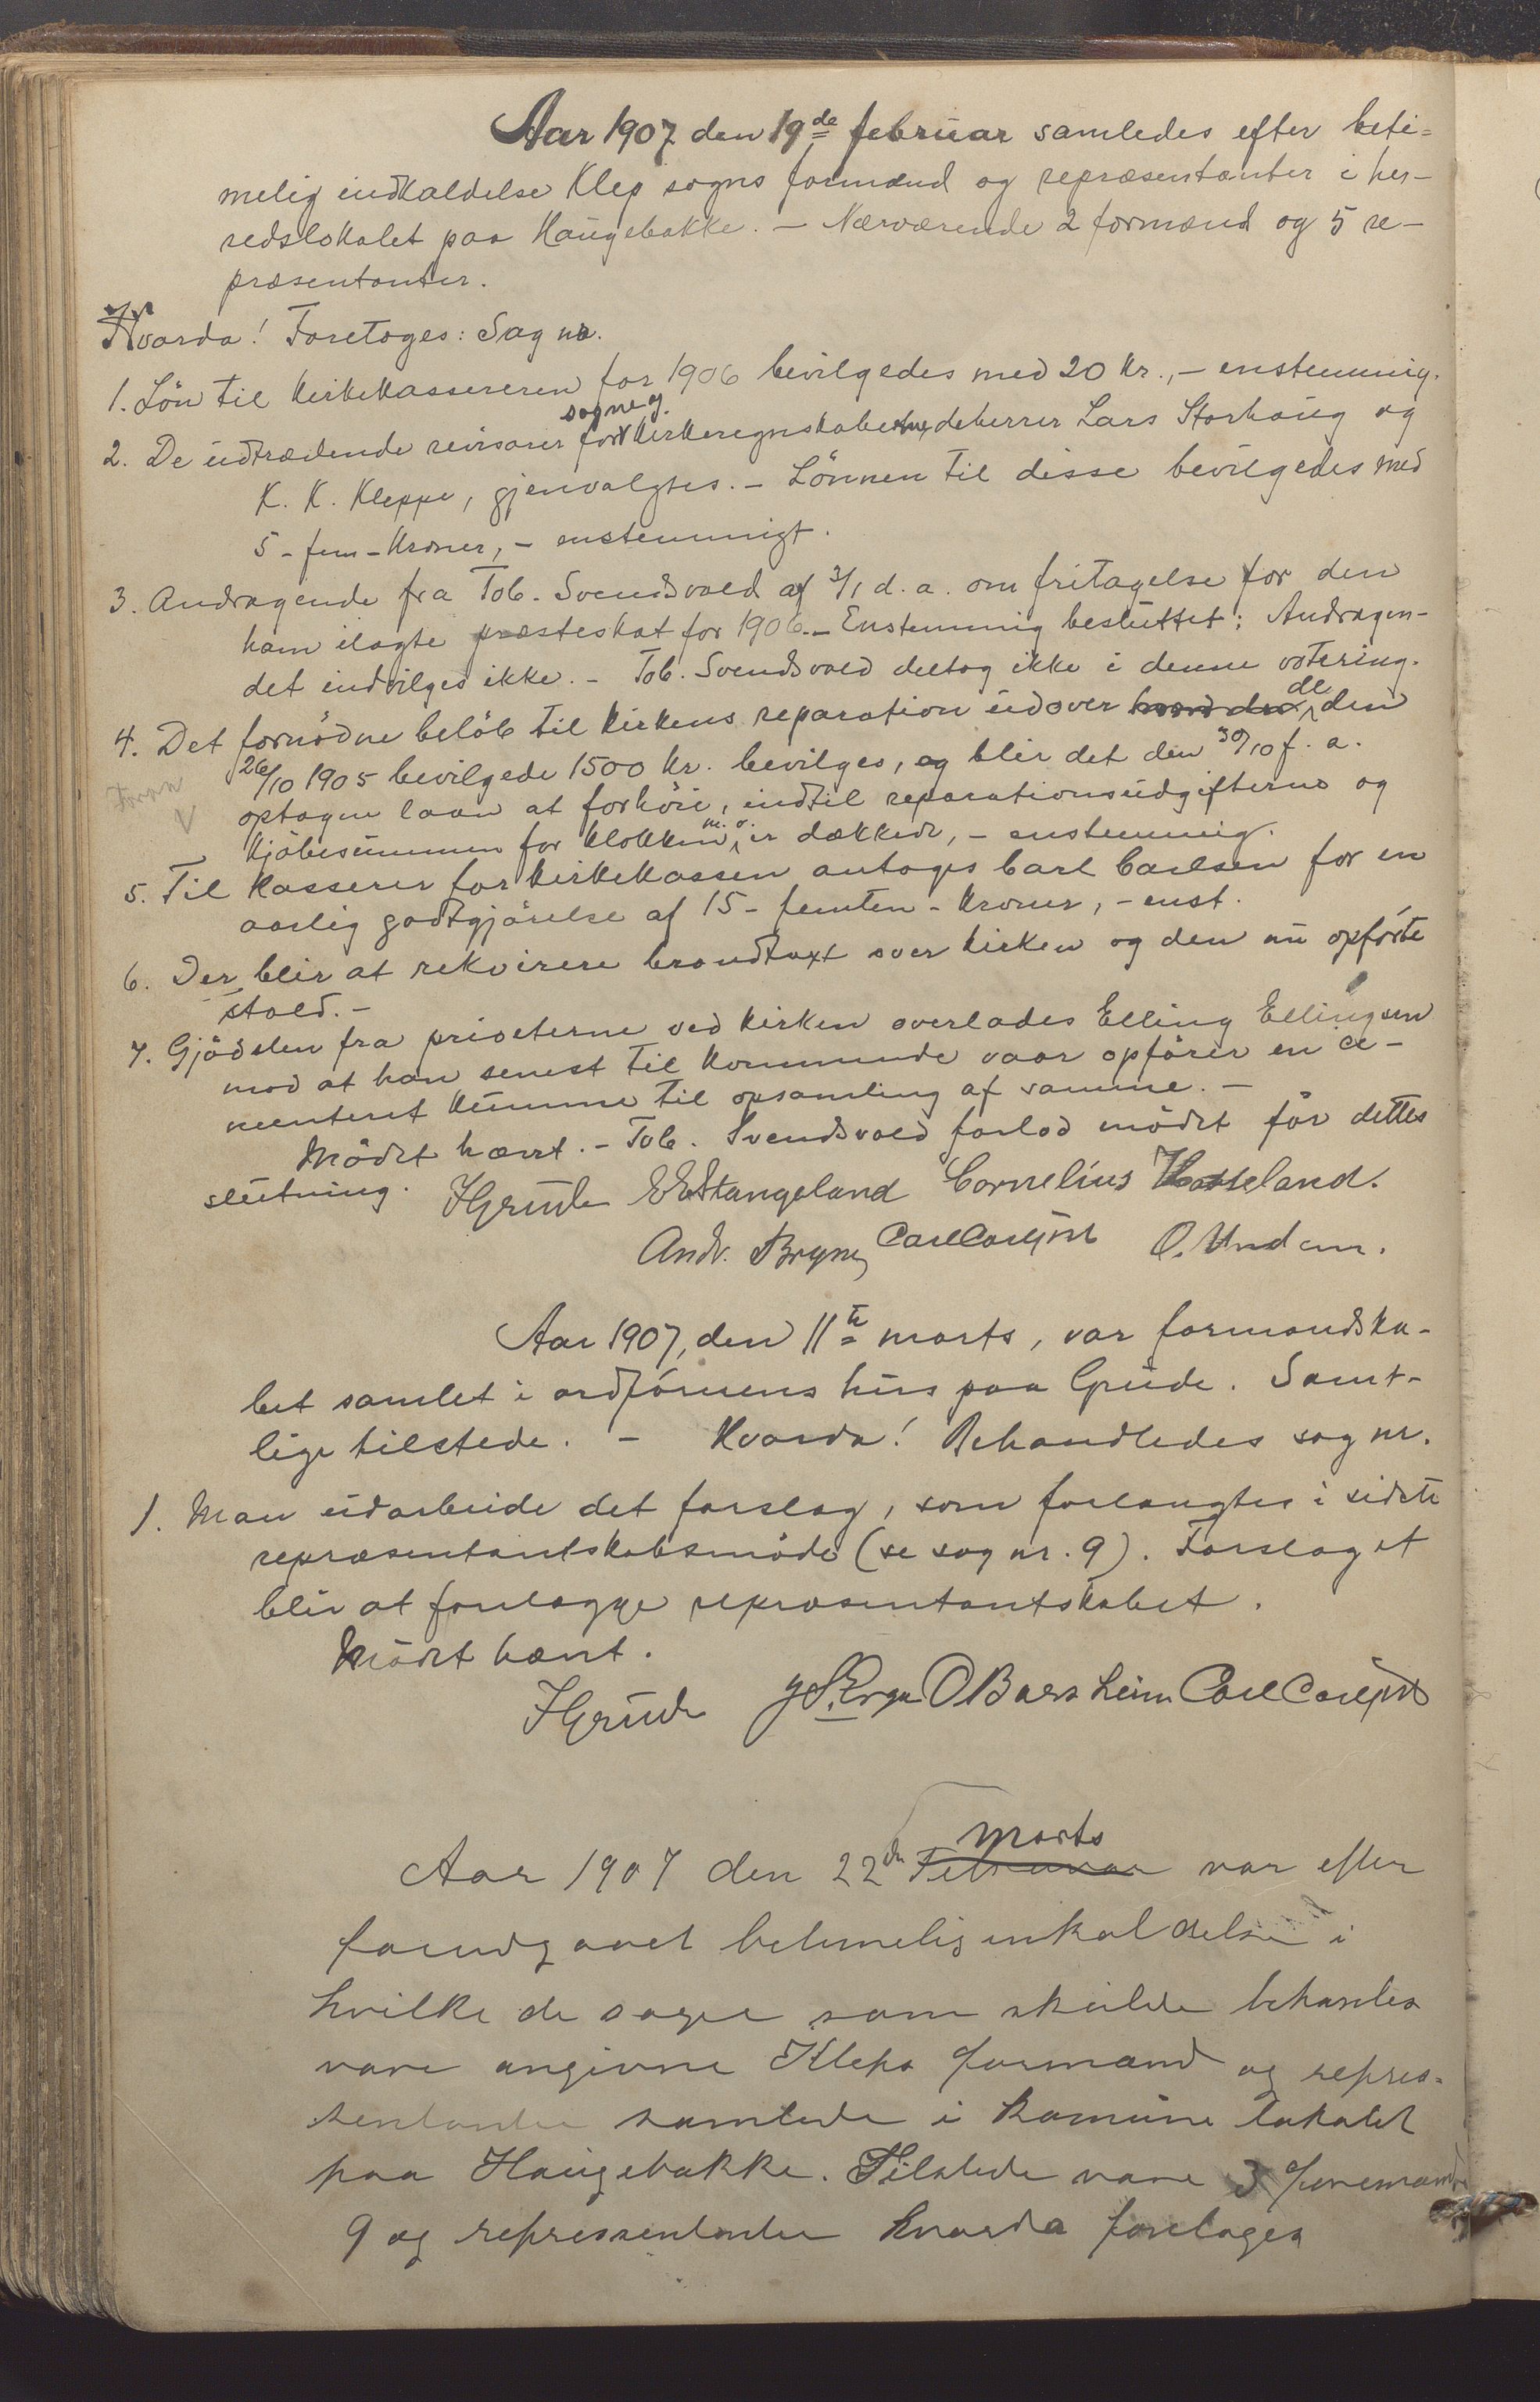 Aar 1907 den 19de februar samledes efter beti-
melig indkaldelse Klep sogns formænd og repræsentanter i her-
redslokalet paa Haugebakke. – Nærværende 2 formænd og 5 re-
præsentanter.
Hvorda! Foretoges: Sag nr.
1. Lön til kirkekassereren for 1906 bevilgedes med 20 kr., – enstemmig.
sogne og
2. De udtrædende revisorer for kirkeregnskaberne, de herrer Lars Storhaug og
K. K. Kleppe, gjenvalgtes. – Lönnen til disse bevilgedes med
5 – fem – kroner, – enstemmigt.
3. Andragende fra Tob. Svendsvold af 3/1 d. a. om fritagelse for den
ham ilagte præsteskat for 1906. – Enstemmig besluttet: Andragen-
det indvilges ikke. – Tob. Svendsvold deltog ikke i denne votering.
4. Det fornödne belöb til kirkens reparation udover de den
26/10 1905 bevilgede 1500 kr. bevilges, og blir det den 30/10 f. a.
optagne laan at forhöie, indtil reparationsudgifterne og
kjöbesummen for klokken m. v. er dækkede, – enstemmig.
5. Til kasserer for kirkekassen antoges Carl Carlsen for en
aarlig godtgjörelse af 15 – femten – kroner, – enst.
6. Der blir at rekvirere brandtaxt over kirken og den nu opförte
stald. –
7. Gjödslen fra priveterne ved kirken overlades Elling Ellingsen
mod at han senest til kommende vaar opförer en ce-
menteret kumme til opsamling af samme. –
Mödet hævt. – Tob. Svendsvold forlod mödet för dettes
slutning. J Grude E E Stangeland Cornelius Hodseland.
Andr. Bryne Carl Carlsen O. Undem.
Aar 1907, den 11te marts, var formandska-
bet samlet i ordförerens hus paa Grude. Samt-
lige tilstede. – Hvorda! Behandledes sag nr.
1. Man udarbeide det forslag, som forlangtes i sidste
repræsentantskabsmöde (se sag nr. 9). Forslaget
blir at forelægge repræsentantskabet.
Mödet hævt.
J Grude O Borsheim Carl Carlsen
Marts
Aar 1907 den 22de Februar var efter
forudgaaet betimelig inkaldelse i
hvilke de sager som skulde behanles
vare angivne Kleps formænd og repres-
sentanter samlede i komune lokalet
paa Haugebakke. Tilstede vare 3 formænd
9 og repressentanter Hvorda foretoges